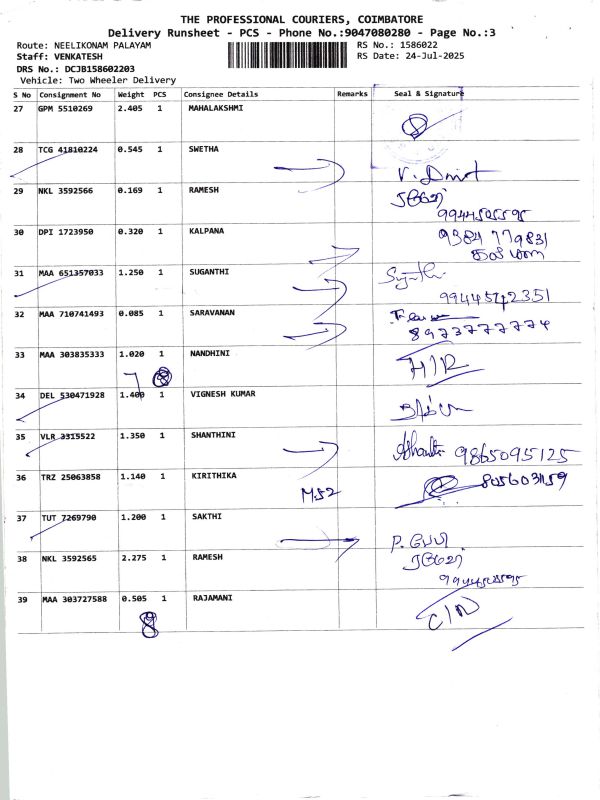 THE PROFESSIONAL COURIERS, COIMBATORE
Delivery Runsheet - PCS - Phone No.:9047080280 - Page No.:3
Route: NEELIKONAM PALAYAM
RS No.: 1586022
Staff: VENKATESH
RS Date: 24-Jul-2025
DRS No.: DCJB158602203
Vehicle: Two Wheeler Delivery
S No Consignment No Weight PCS Consignee Details Remarks Seal & Signature
27 GPM 5510269 2.405 1 MAHALAKSHMI
28 TCG 41810224 0.545 1 SWETHA
29 NKL 3592566 0.169 1 RAMESH
ரமேஷ்
30 DPI 1723950 0.320 1 KALPANA 9384779831
31 MAA 651357033 1.250 1 SUGANTHI
32 MAA 710741493 0.085 1 SARAVANAN
8973777774
33 MAA 303835333 1.020 1 NANDHINI
H/R
34 DEL 530471928 1.400 1 VIGNESH KUMAR
35 VLR 3315522 1.350 1 SHANTHINI
9865095125
36 TRZ 25063858 1.140 1 KIRITHIKA
M.52
37 TUT 7269790 1.200 1 SAKTHI
P. பேபி
38 NKL 3592565 2.275 1 RAMESH ரமேஷ்
39 MAA 303727588 0.505 1 RAJAMANI
8